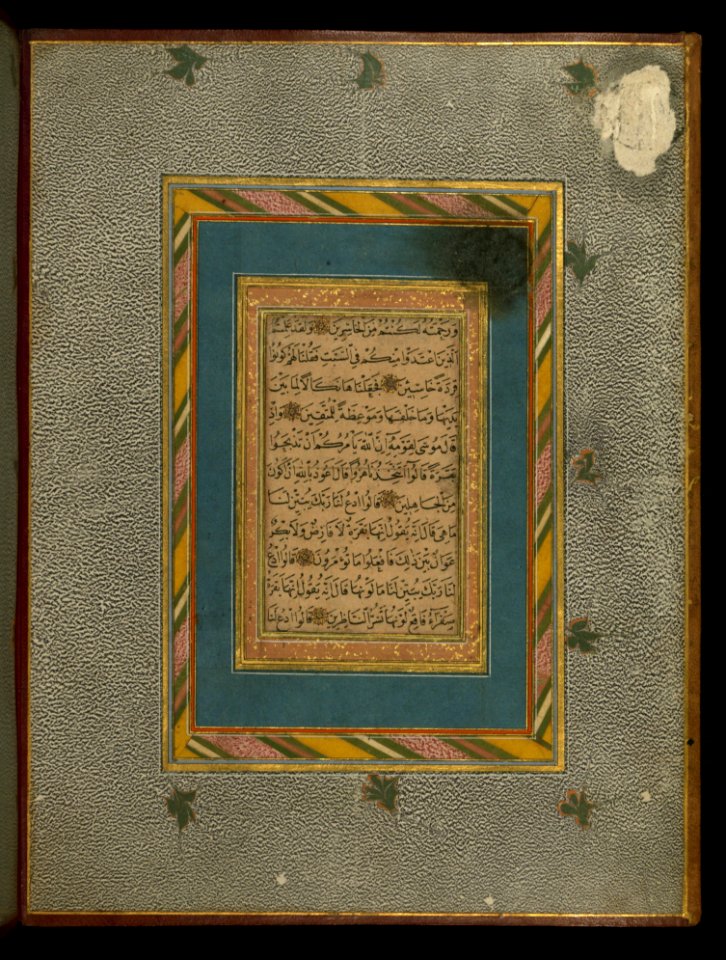 وَرَحْمَتُهُ لَكُنْتُمْ مِنَ الْخَاسِرِينَ وَلَقَدْ عَلِمْتُمُ
الَّذِينَ اعْتَدَوْا مِنْكُمْ فِي السَّبْتِ فَقُلْنَا لَهُمْ كُونُوا
قِرَدَةً خَاسِئِينَ فَجَعَلْنَاهَا نَكَالًا لِمَا بَيْنَ
يَدَيْهَا وَمَا خَلْفَهَا وَمَوْعِظَةً لِلْمُتَّقِينَ وَإِذْ
قَالَ مُوسَى لِقَوْمِهِ إِنَّ اللَّهَ يَأْمُرُكُمْ أَنْ تَذْبَحُوا
بَقَرَةً قَالُوا أَتَتَّخِذُنَا هُزُوًا قَالَ أَعُوذُ بِاللَّهِ أَنْ أَكُونَ
مِنَ الْجَاهِلِينَ قَالُوا ادْعُ لَنَا رَبَّكَ يُبَيِّنْ لَنَا
مَا هِيَ قَالَ إِنَّهُ يَقُولُ إِنَّهَا بَقَرَةٌ لَا فَارِضٌ وَلَا بِكْرٌ
عَوَانٌ بَيْنَ ذَلِكَ فَافْعَلُوا مَا تُؤْمَرُونَ قَالُوا ادْعُ
لَنَا رَبَّكَ يُبَيِّنْ لَنَا مَا لَوْنُهَا قَالَ إِنَّهُ يَقُولُ إِنَّهَا بَقَرَةٌ
صَفْرَاءُ فَاقِعٌ لَوْنُهَا تَسُرُّ النَّاظِرِينَ قَالُوا ادْعُ لَنَا